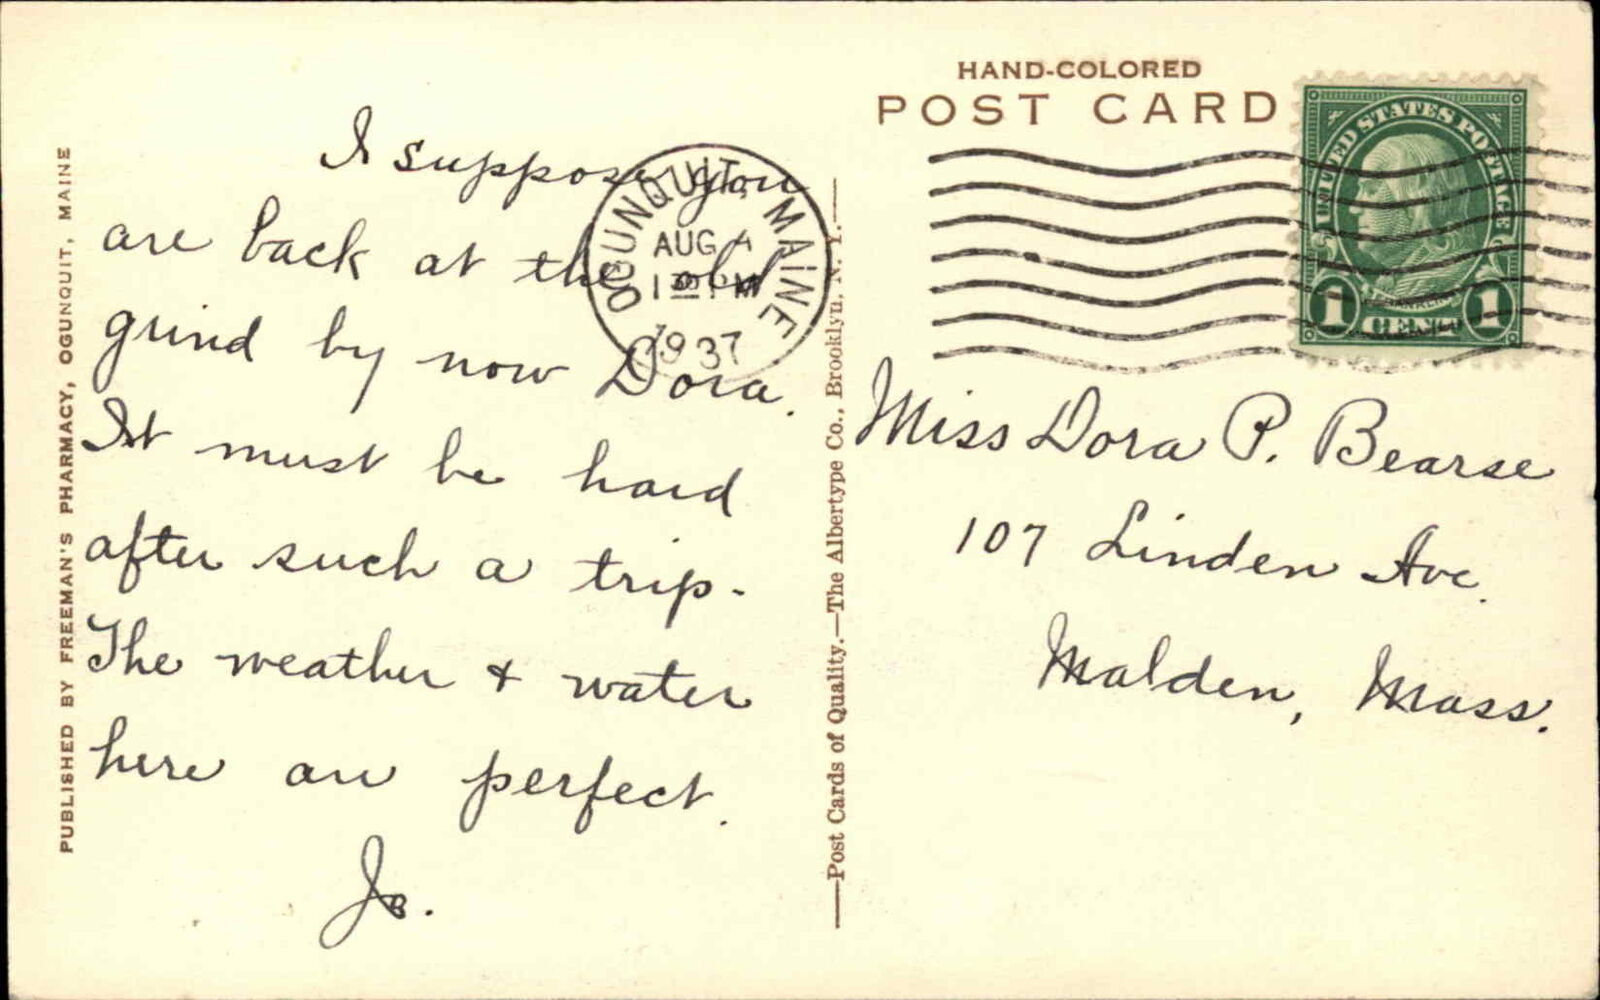 PUBLISHED BY FREEMAN'S PHARMACY, OGUNQUIT, MAINE
I suppose you
are back at the old
grind by now Dora.
It must be hard
after such a trip.
The weather & water
here are perfect.
OGUNQUIT, MAINE
AUG 4
1 PM
1937
—Post Cards of Quality.—The Albertype Co., Brooklyn, N. Y.—
HAND-COLORED
POST CARD
UNITED STATES POSTAGE
FRANKLIN
1 CENT 1
Miss Dora P. Bearse
107 Linden Ave.
Malden, Mass.